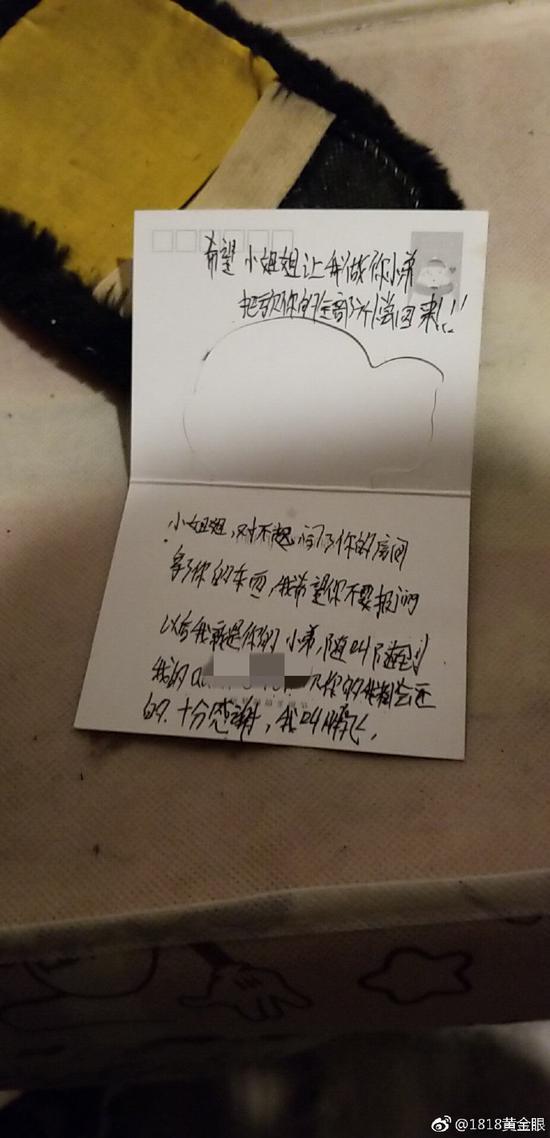 希望小姐姐让我做你小弟
把欠你的全部补偿回来!!!
小姐姐,对不起,闯了你的房间
拿了你的东西,我希望你不要报
以后我就是你的小弟,随叫随到
我的 欠你的我都会还
的.十分感谢,我叫
@1818黄金眼